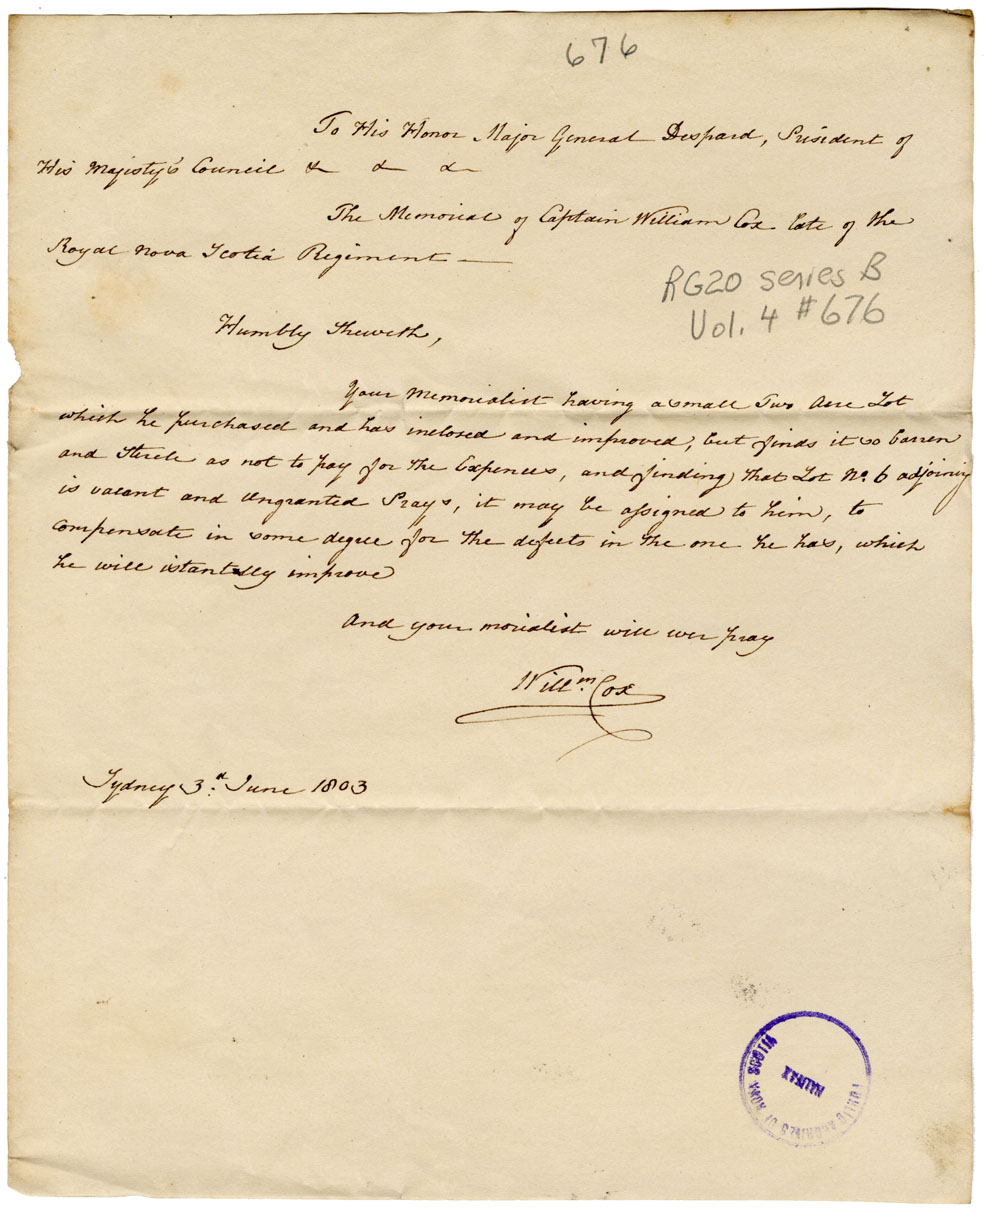 676
To His Honor Major General Despard, President of
His Majesty's Council & & &
The Memorial of Captain William Cox late of the
Royal Nova Scotia Regiment —
RG20 series B
Vol. 4 #676
Humbly Sheweth,
Your Memorialist having a small Two Acre Lot
which he purchased and has inclosed and improved, but finds it so barren
and Sterele as not to pay for the Expences, and finding that Lot No. 6 adjoining
is vacant and ungranted Prays, it may be assigned to him, to
compensate in some degree for the defects in the one he has, which
he will istantslly improve
And your morialist will ever pray
Willm. Cox
Sydney 3d. June 1803
PUBLIC ARCHIVES OF NOVA SCOTIA
HALIFAX